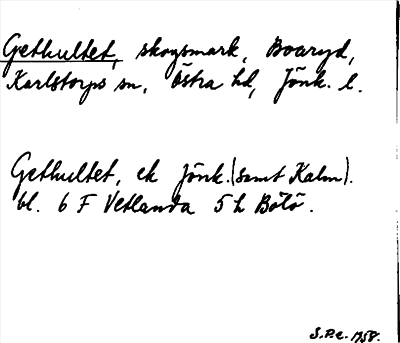 Gethultet, skogsmark, Boaryd,
Karlstorps sn, Östra hd, Jönk. l.
Gethultet, ek Jönk. (samt Kalm).
bl. 6 F Vetlanda 5 h Bötö.
S.P.C. 1958.